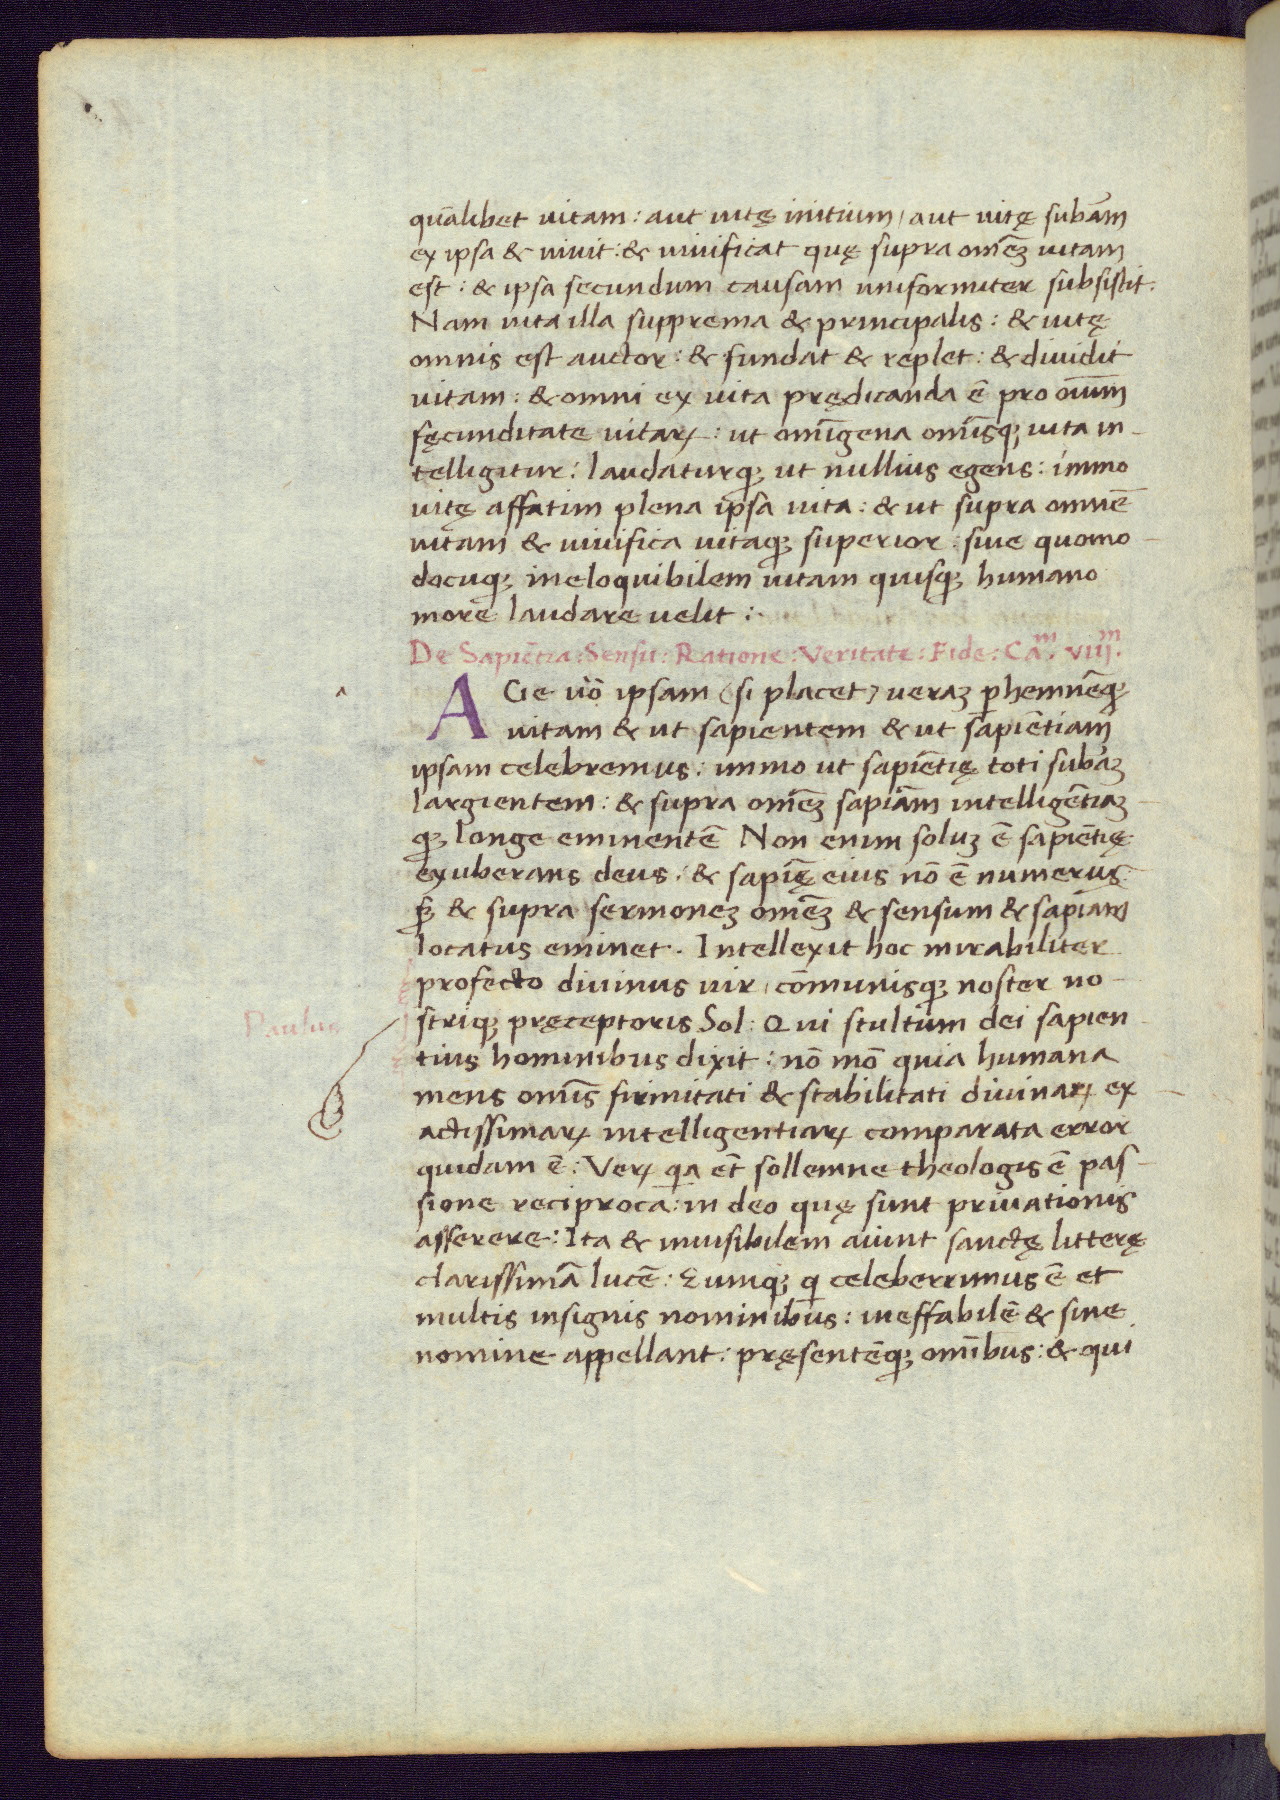 quālibet uitam: aut uitę initium, aut uitę subām
ex ipsa & uiuit: & uiuificat quę supra omēꝫ uitam
est: & ipsa secundum causam uniformiter subsistit:
Nam uita illa supprema & principalis: & uitę
omnis est auctor: & fundat & replet: & diuidit
uitam: & omni ex uita prędicanda ē pro oīum
fęcunditate uitaꝝ: ut omīgena omīsqꝫ uita in-
telligitur: laudaturqꝫ ut nullius egens: immo
uitę affatim plena ipsa uita: & ut supra omnē
uitam & uiuifica uitaqꝫ superior: siue quomo-
docuqꝫ ineloquibilem uitam quisqꝫ humano
more laudare uelit:
De Sapiētia: Sensu: Ratione: Veritate: Fide: Caᵐ. viijᵐ.
AGe uō ipsam (si placet) ueraꝫ ꝑhemnēqꝫ
uitam & ut sapientem & ut sapiētiam
ipsam celebremus: immo ut sapiētię toti subāꝫ
largientem: & supra omēꝫ sapiām intelligētiaꝫ-
qꝫ longe eminentē Non enim soluꝫ ē sapiētię
exuberans deus: & sapię̄ eius nō ē numerus:
sꝫ & supra sermoneꝫ omēꝫ & sensum & sapiam
locatus eminet. Intellexit hoc mirabiliter
profecto diuinus uir, cōmunisqꝫ noster no-
Paulus
striqꝫ pręceptoris Sol: Qui stultum dei sapien-
tius hominibus dixit: nō mō quia humana
mens omīs firmitati & stabilitati diuinaꝝ ex-
actissimaꝝ intelligentiaꝝ comparata error
quidam ē: Veꝝ qa et̄ sollemne theologis ē pas-
sione reciproca: in deo quę sunt priuationis
asserere: Ita & inuisibilem aiunt sanctę litterę
clarissimā lucē: Eumqꝫ q celeberrimus ē et
multis insignis nominibus: ineffabilē & sine
nomine appellant: pręsentēqꝫ omībus: & qui